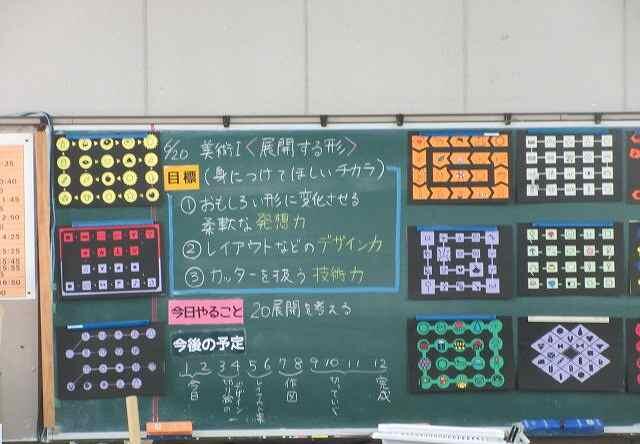 6/20 美術I〈展開する形〉
目標 (身につけてほしいチカラ)
① おもしろい形に変化させる
柔軟な発想力
② レイアウトなどのデザイン力
③ カッターを扱う技術力
今日やること 20展開を考える
今後の予定
1 2 3 4 5 6 7 8 9 10 11 12
今日
作図
完成